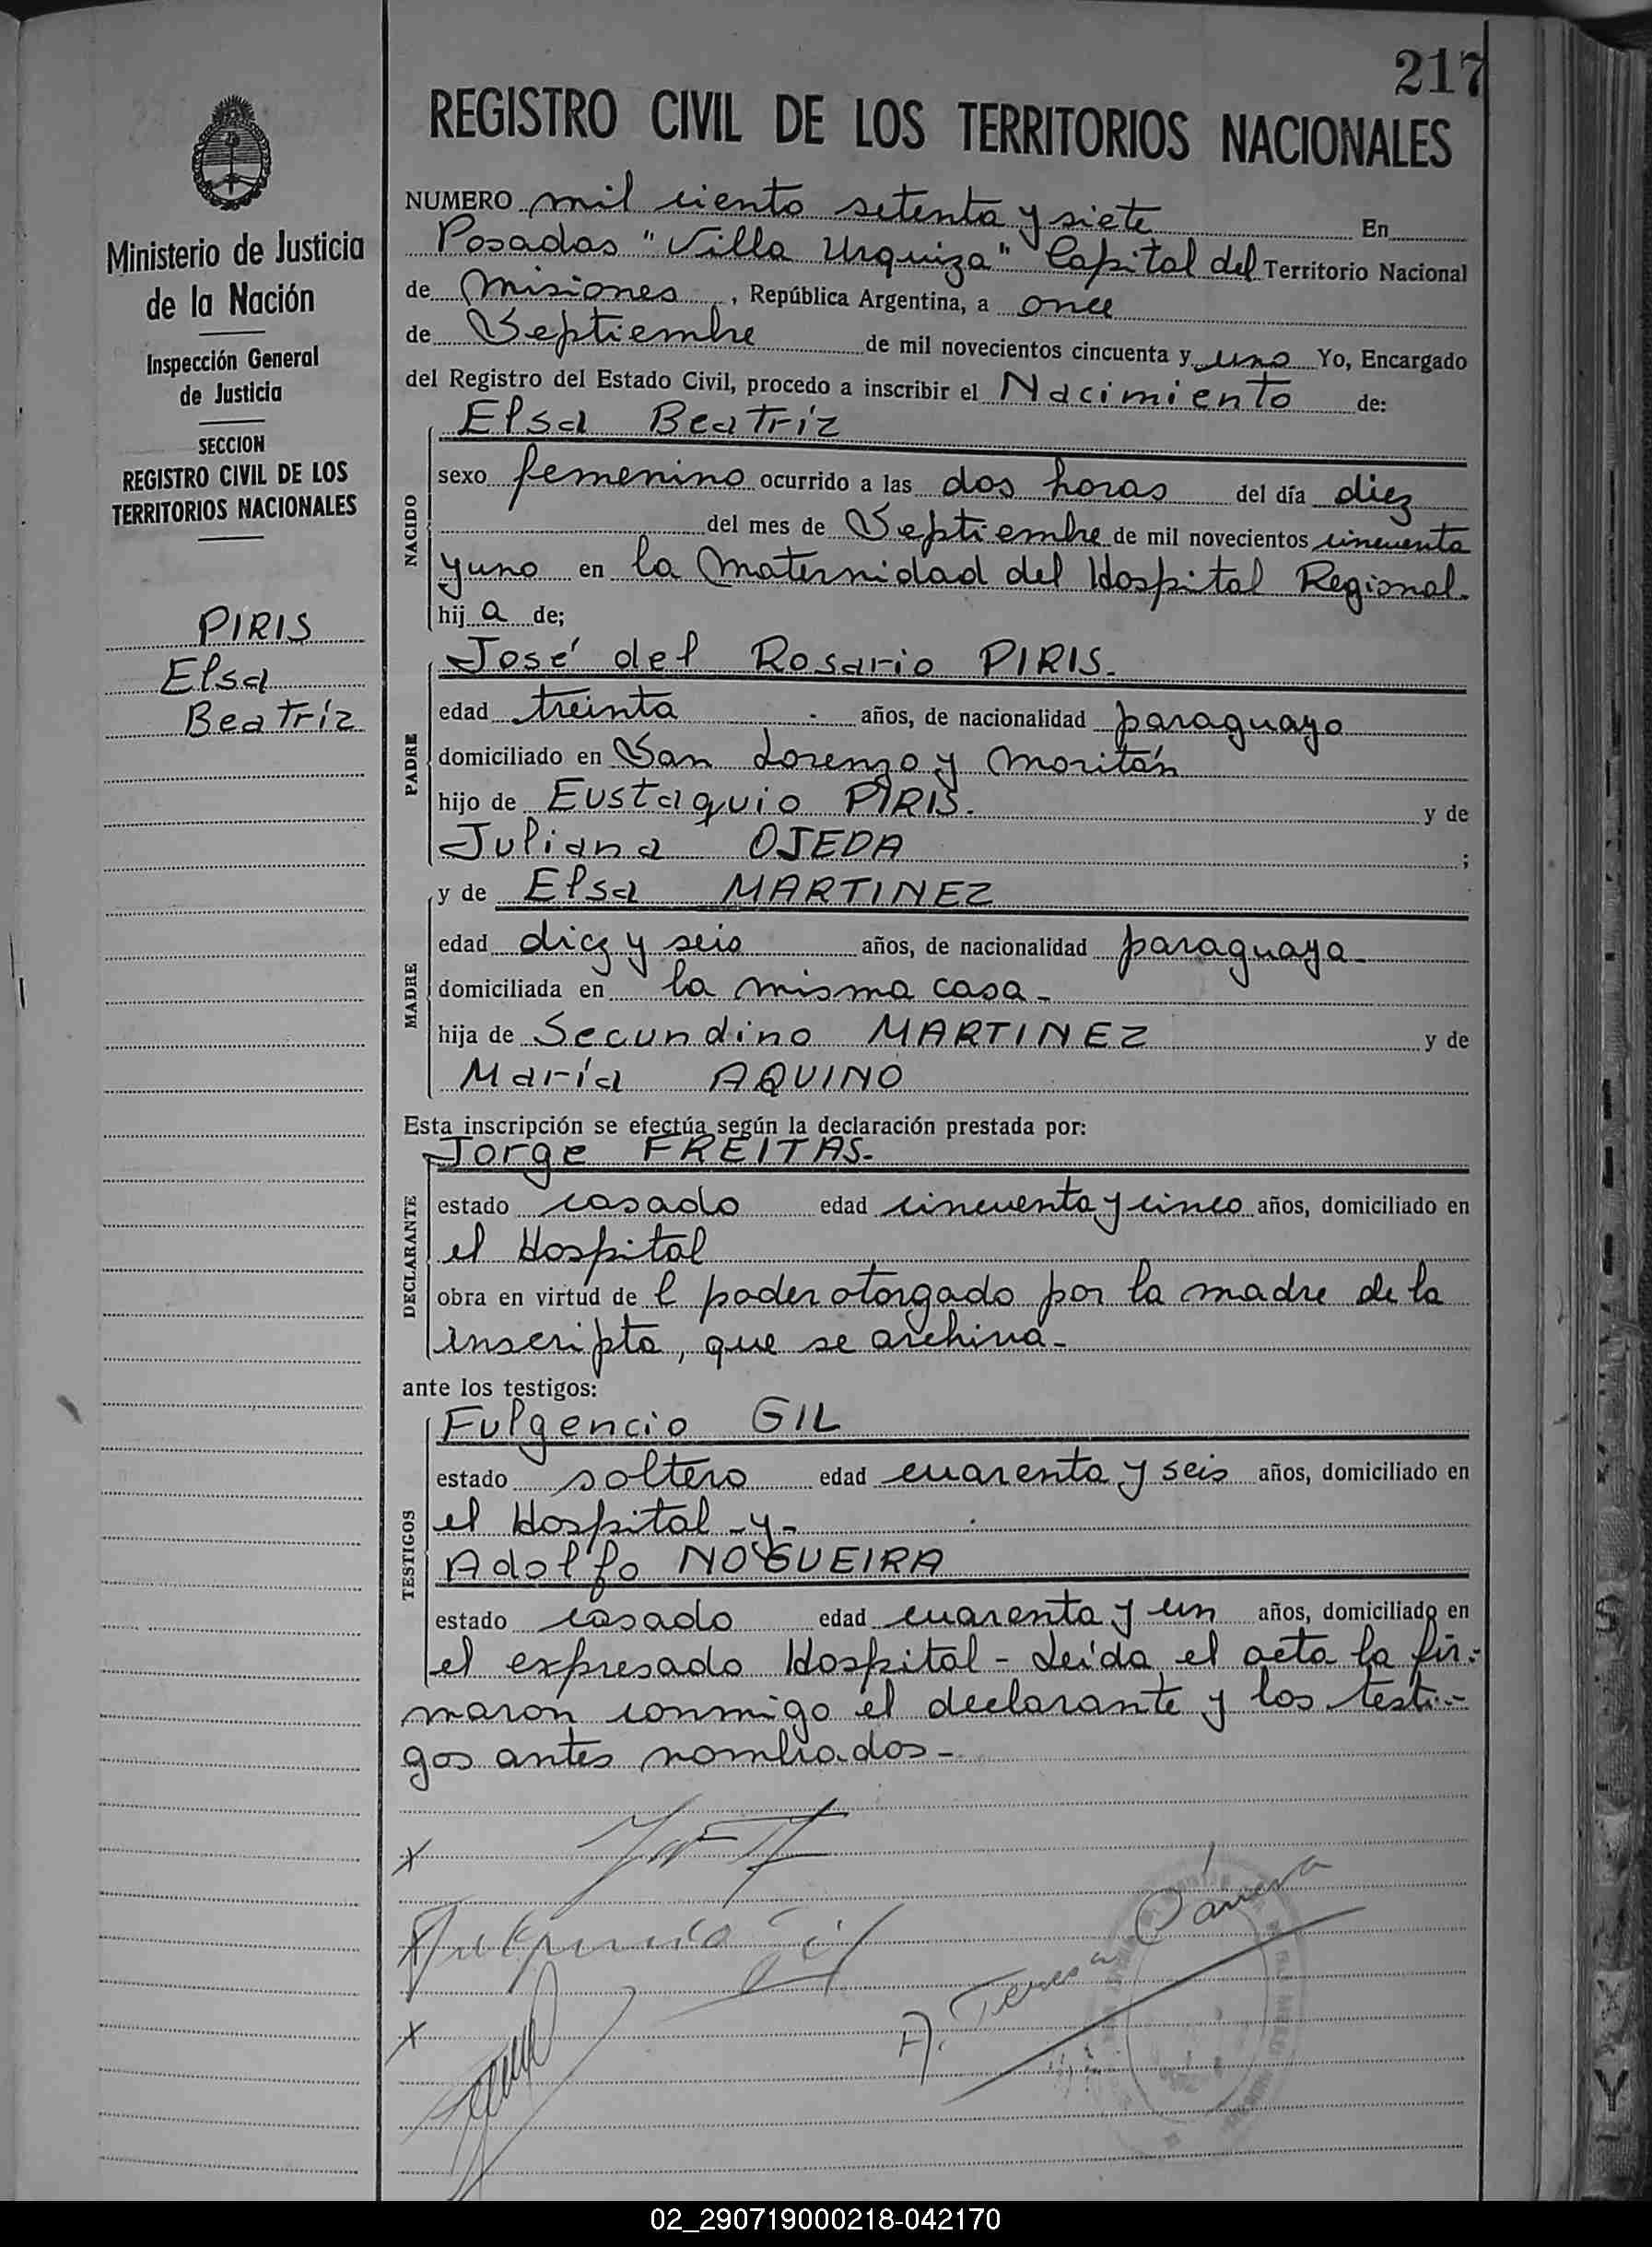 217
REGISTRO CIVIL DE LOS TERRITORIOS NACIONALES
Ministerio de Justicia
de la Nación
Inspección General
de Justicia
SECCION
REGISTRO CIVIL DE LOS
TERRITORIOS NACIONALES
PIRIS
Elsa
Beatríz
NUMERO mil ciento setenta y siete En
Posadas "Villa Urquiza" Capital del Territorio Nacional
de Misiones, República Argentina, a once
de Septiembre de mil novecientos cincuenta y uno Yo, Encargado
del Registro del Estado Civil, procedo a inscribir el Nacimiento de:
NACIDO
Elsa Beatríz
sexo femenino ocurrido a las dos horas del día diez
del mes de Septiembre de mil novecientos cincuenta
y uno en la Maternidad del Hospital Regional.
hij a de;
PADRE
José del Rosario PIRIS.
edad treinta años, de nacionalidad paraguayo
domiciliado en San Lorenzo y Moritán
hijo de Eustaquio PIRIS. y de
Juliana OJEDA ;
MADRE
y de Elsa MARTINEZ
edad diez y seis años, de nacionalidad paraguaya-
domiciliada en la misma casa-
hija de Secundino MARTINEZ y de
María AQUINO
Esta inscripción se efectúa según la declaración prestada por:
DECLARANTE
Jorge FREITAS-
estado casado edad cincuenta y cinco años, domiciliado en
el Hospital
obra en virtud de l poder otorgado por la madre de la
inscripta, que se archiva-
ante los testigos:
TESTIGOS
Fulgencio GIL
estado soltero edad cuarenta y seis años, domiciliado en
el Hospital -y-
Adolfo NOGUEIRA
estado casado edad cuarenta y un años, domiciliado en
el expresado Hospital - Leída el acta la fir-
maron conmigo el declarante y los testi-
gos antes nombrados-
x
Fulgencio Gil
x
A. Teresa
02_290719000218-042170